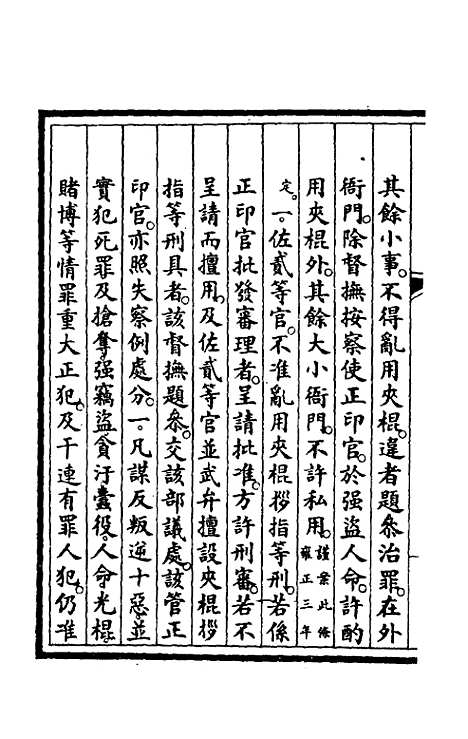 其餘小事。不得亂用夾棍。違者題參治罪。在外
衙門。除督撫按察使正印官。於强盜人命。許酌
用夾棍外。其餘大小衙門。不許私用。謹案此條雍正三年
定。一。佐貳等官。不准亂用夾棍拶指等刑。若係
正印官批發審理者。呈請批准。方許刑審。若不
呈請而擅用。及佐貳等官並武弁擅設夾棍拶
指等刑具者。該督撫題參。交該部議處。該管正
印官。亦照失察例處分。一。凡謀反叛逆十惡。並
實犯死罪。及搶奪。强竊盜。貪汙蠹役。人命。光棍。
賭博等情罪重大正犯。及干連有罪人犯。仍准